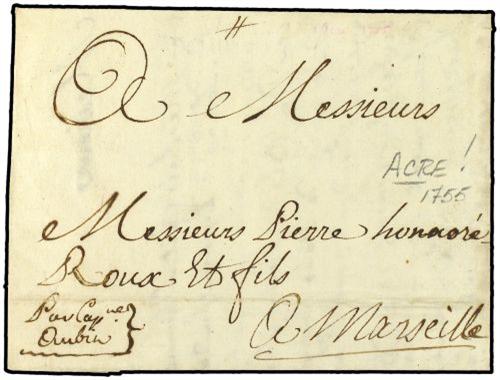 A Messieurs
ACRE !
1755
Messieurs Pierre honnoré
Roux Et fils
Par Cap.ne
Aubin
A Marseille